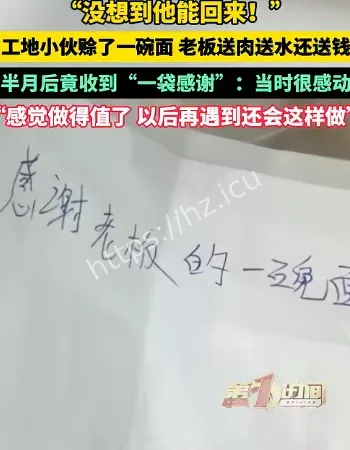 “没想到他能回来！”
工地小伙赊了一碗面 老板送肉送水还送钱
半月后竟收到“一袋感谢”：当时很感动
“感觉做得值了 以后再遇到还会这样做”
感谢老板的一碗面
https://hz.icu
第1